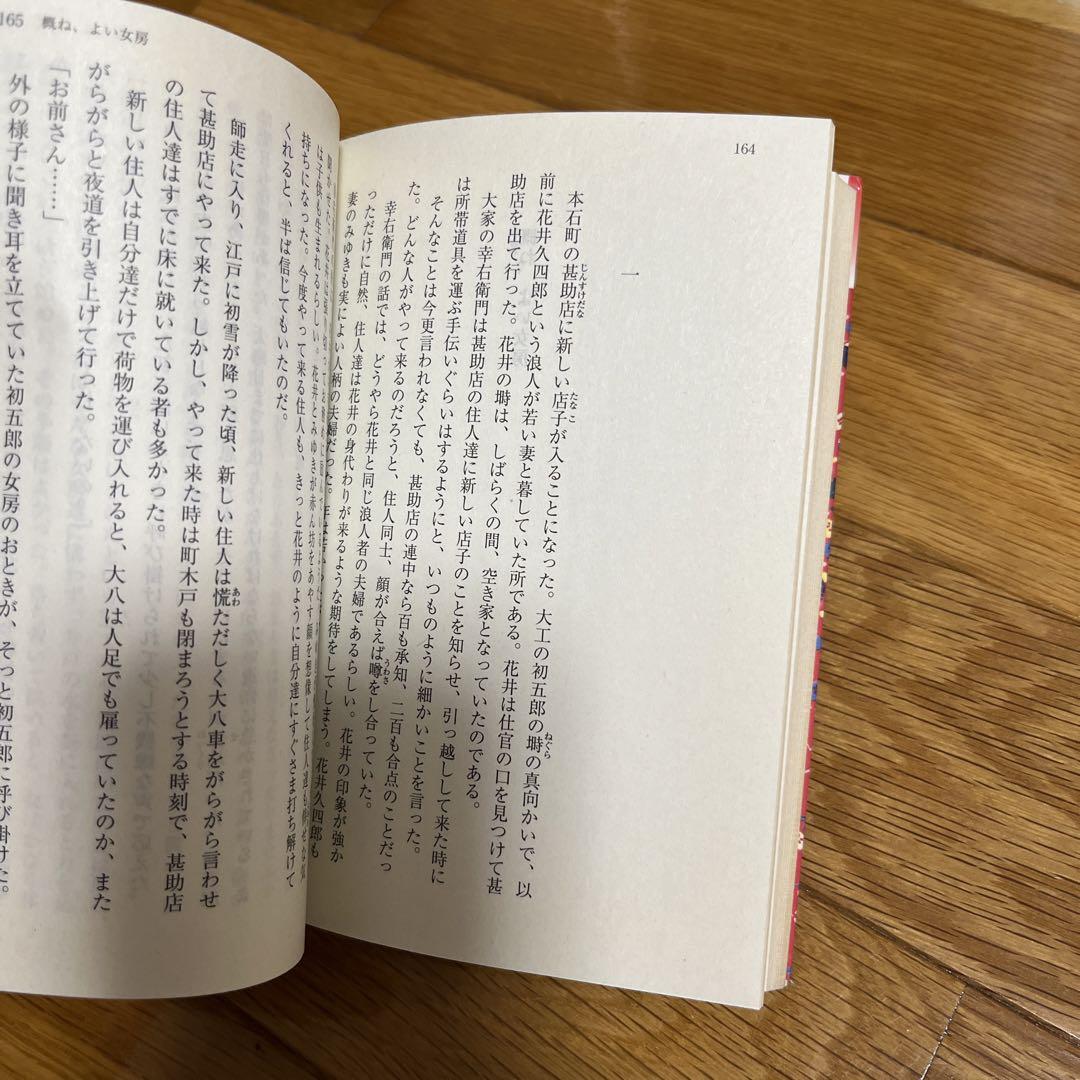 164
一
本石町の甚助店に新しい店子が入ることになった。大工の初五郎の塒の真向かいで、以
じんすけだな
たなこ
ねぐら
前に花井久四郎という浪人が若い妻と暮していた所である。花井は仕官の口を見つけて甚
助店を出て行った。花井の塒は、しばらくの間、空き家となっていたのである。
大家の幸右衛門は甚助店の住人達に新しい店子のことを知らせ、引っ越しして来た時に
は所帯道具を運ぶ手伝いぐらいはするようにと、いつものように細かいことを言った。
そんなことは今更言われなくても、甚助店の連中なら百も承知、二百も合点のことだっ
た。どんな人がやって来るのだろうと、住人同士、顔が合えば噂をし合っていた。
うわさ
幸右衛門の話では、どうやら花井と同じ浪人者の夫婦であるらしい。花井の印象が強か
っただけに自然、住人達は花井の身代わりが来るような期待をしてしまう。花井久四郎も
妻のみゆきも実によい人柄の夫婦だった。
は子供も生まれるらしい。花井とみゆきが赤ん坊をあやす顔を想像して住人達も幸せな気
持ちになった。今度やって来る住人も、きっと花井のように自分達にすぐさま打ち解けて
くれると、半ば信じてもいたのだ。
165 概ね、よい女房
師走に入り、江戸に初雪が降った頃、新しい住人は慌ただしく大八車をがらがら言わせ
あわ
て甚助店にやって来た。しかし、やって来た時は町木戸も閉まろうとする時刻で、甚助店
の住人達はすでに床に就いている者も多かった。
新しい住人は自分達だけで荷物を運び入れると、大八は人足でも雇っていたのか、また
がらがらと夜道を引き上げて行った。
「お前さん……」
外の様子に聞き耳を立てていた初五郎の女房のおときが、そっと初五郎に呼び掛けた。